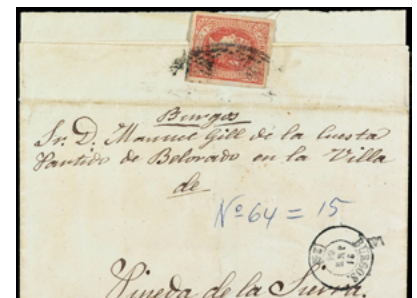 Burgos
Sr. D. Manuel Gill de la Cuesta
Partido de Belorado en la Villa
de
Nº 64 = 15
BURGOS
Pineda de la Sierra.